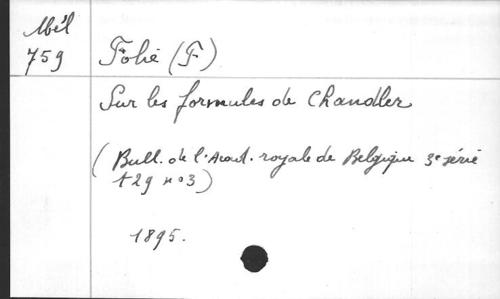 Mél
759
Folie (F)
Sur les formules de Chandler
(Bull. de l'Acad. royale de Belgique 3e série
t 29 no 3)
1895.